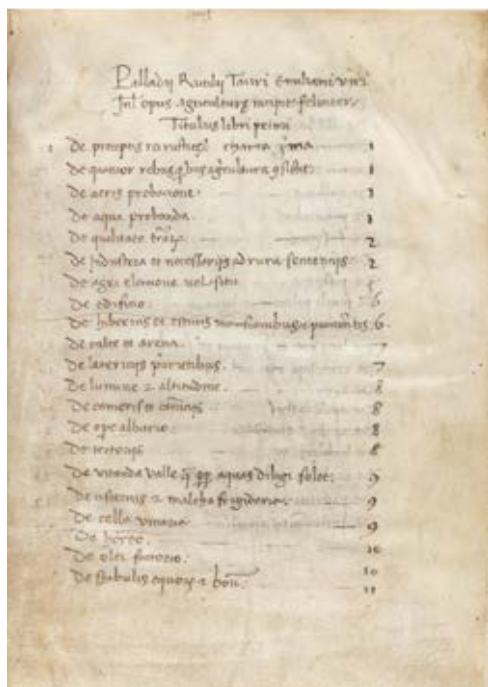 Palladij Rutilij Tauri Emiliani viri
Inl. opus agriculturę incipit feliciter.
Titulus libri primi
1 De preceptis rei rusticę. charta pͥma 1
De quatuor rebus qͥbus agͥcultura ꝯsistit. 1
De aeris probatione. 1
De aqua probanda. 2
De qualitate terrarꝫ 2
De industria et necessarijs ad rura sententijs 2
De agri electione vel situ 5
De edificio. 6
De hibernis et estiuis mansionibus et pauimentis 6.
De calce et arena. 7
De latericijs parietibus. 7
De lumine 2 altitudine. 8
De cameris et 8
De ope albario. 8
De tectorijs 8
De vitanda valle aquas solet. 9
De 2 maltha frigidaria. 9
De cella vinaria 9
De horreo. 10
De olei factorio. 10
De stabulis equorꝫ 2 boū. 11